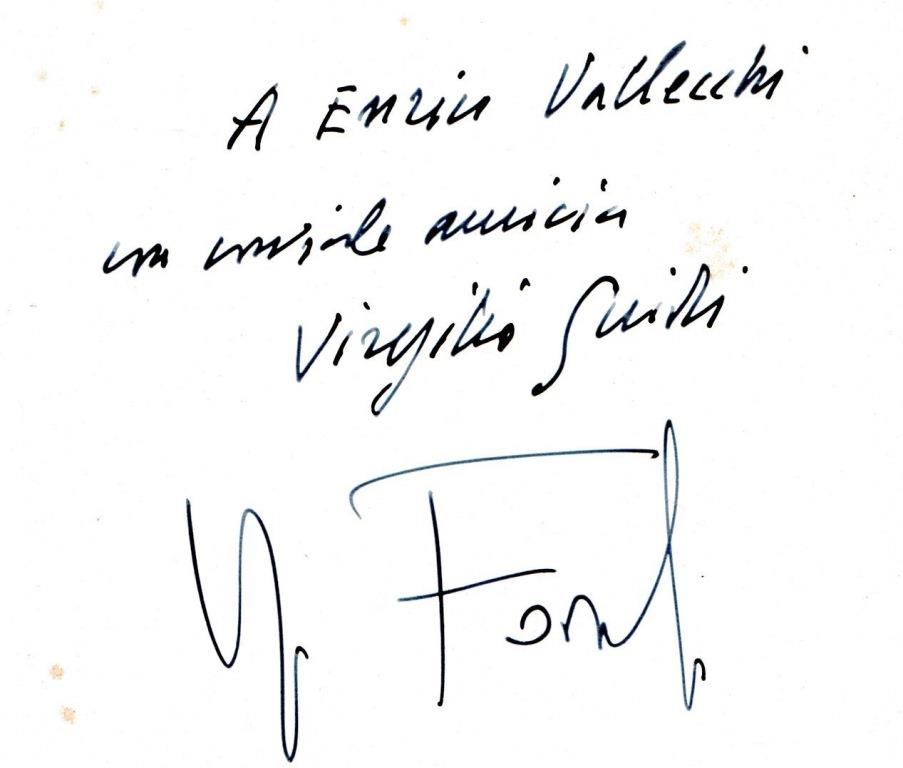 A Enrico Vallecchi
con cordiale amicizia
Virgilio Guidi